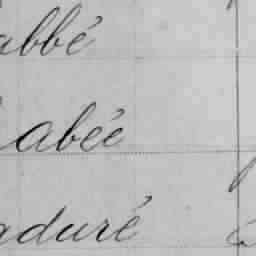 abbé
abée
aduré